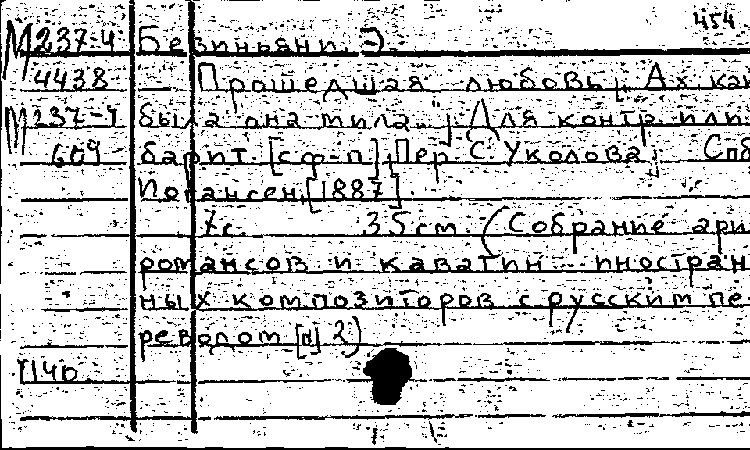 454
М 237-4 Безиньяни, Э.
4438 Прошедшая любовь; Ах как
М 237-4 была она мила...; Для контр. или
609 барит. [с ф-п]. Пер. С. Уколова; Спб
Иогансен, [1887].
7 с. 35 см. (Собрание ари
романсов и каватин... иностран
ных композиторов с русским пе
реводом [№] 2)